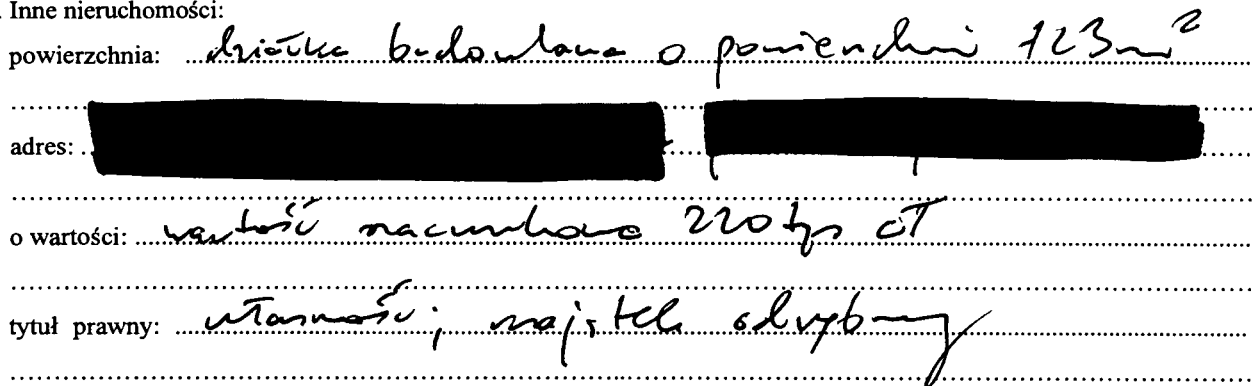 Inne nieruchomości:
powierzchnia: działka budowlana o powierzchni 723 m²
adres:
o wartości: wartość szacunkowa 220 tys zł
tytuł prawny: własność, majątek odrębny